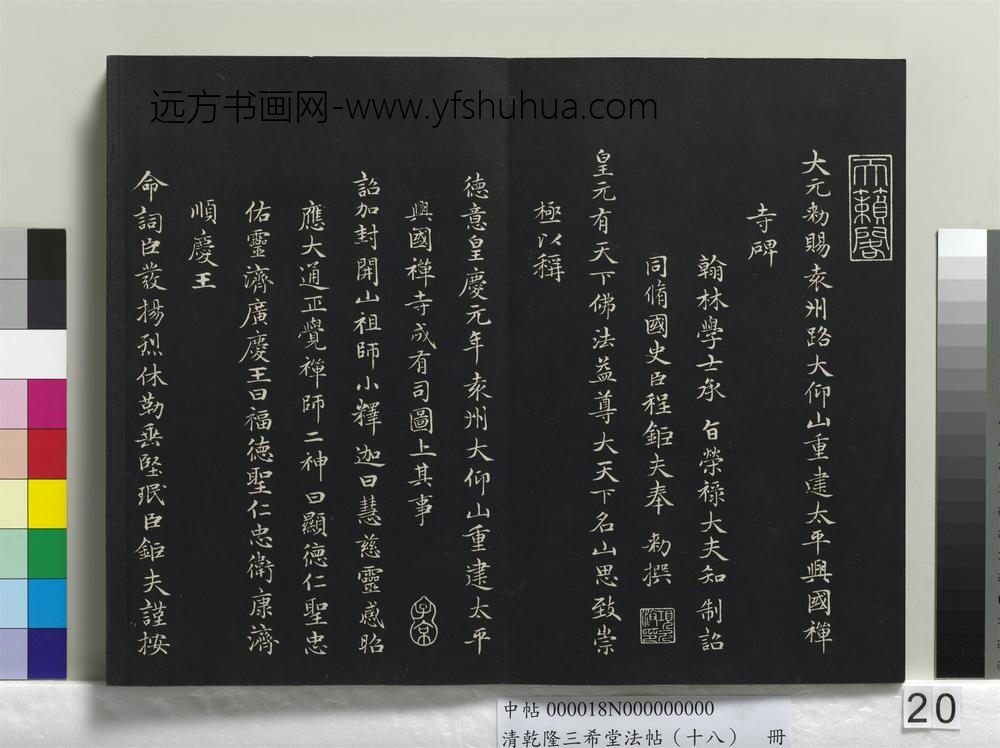 远方书画网-www.yfshuhua.com
天籟閣
大元勅賜袁州路大仰山重建太平興國禪
寺碑
翰林學士承旨榮祿大夫知制詔
同脩國史臣程鉅夫奉勅撰
項元汴印
皇元有天下佛法益尊大天下名山思致崇
極以稱
德意皇慶元年袁州大仰山重建太平
興國禪寺成有司圖上其事
子京
詔加封開山祖師小釋迦曰慧慈靈感昭
應大通正覺禪師二神曰顯德仁聖忠
佑靈濟廣慶王曰福德聖仁忠衛康濟
順慶王
命詞臣發揚烈休勒垂堅珉臣鉅夫謹按
中帖 000018N000000000
清乾隆三希堂法帖（十八） 冊
20